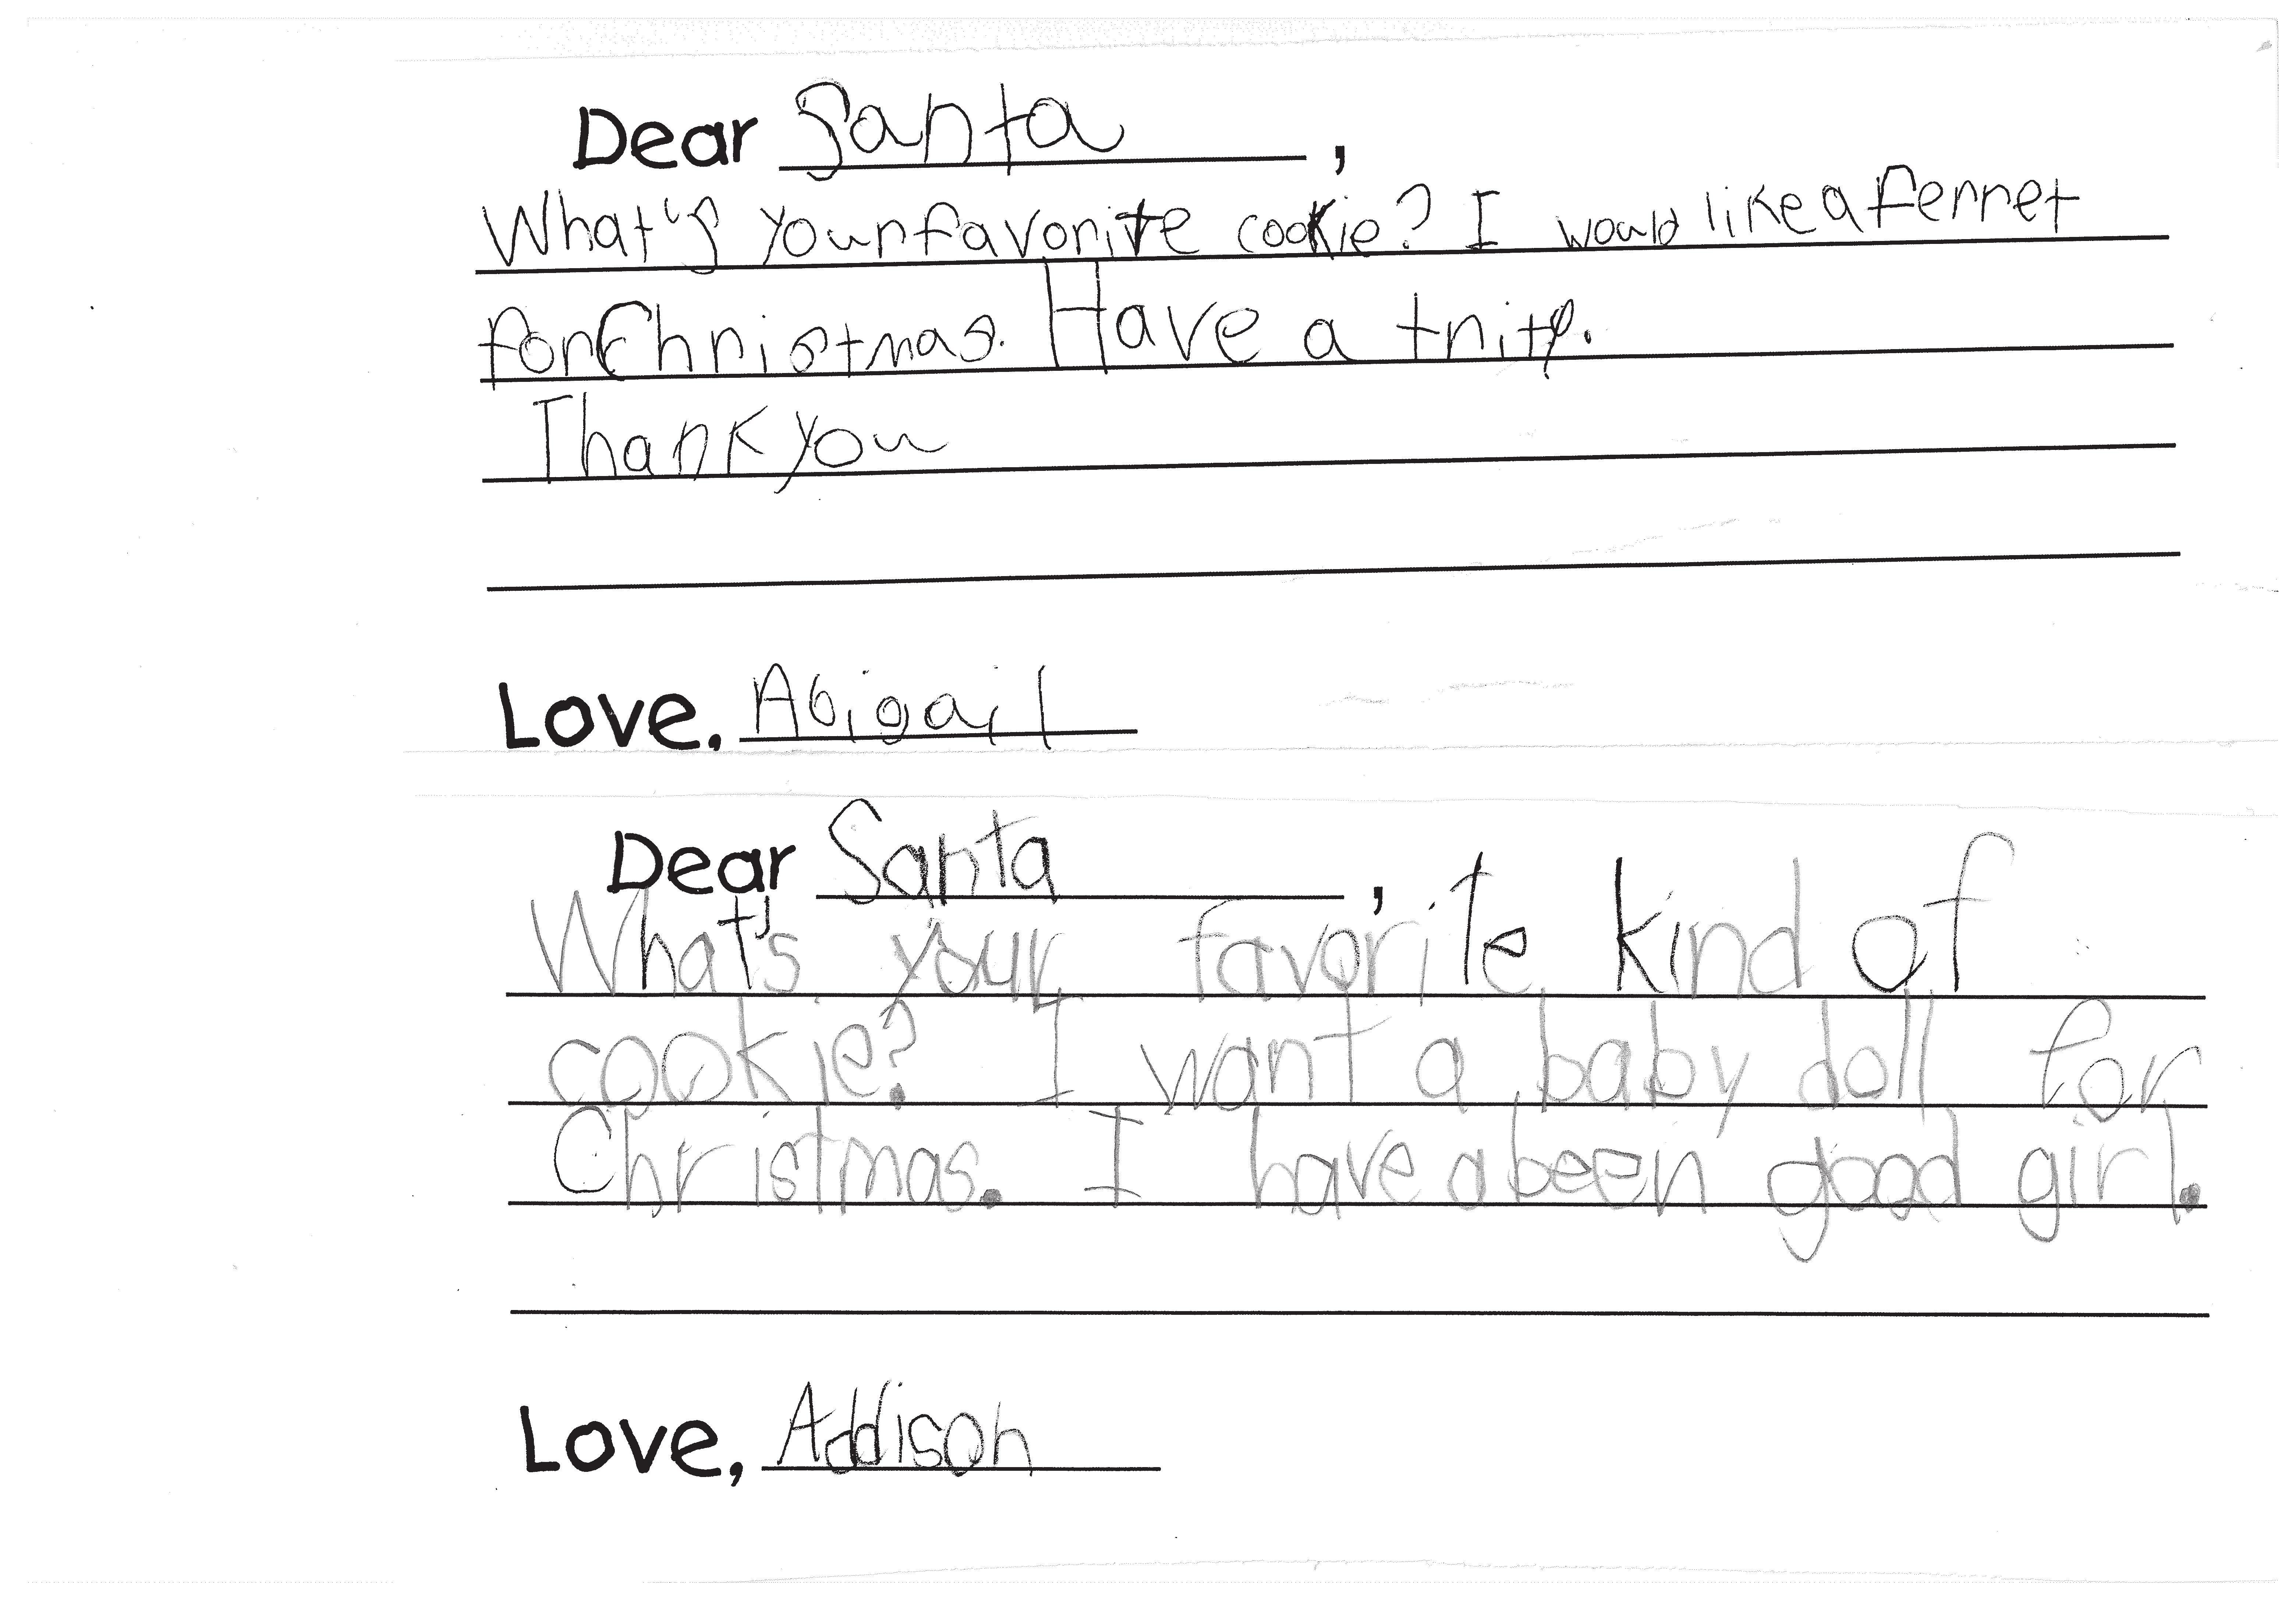 Dear Santa,
What's your favorite cookie? I would like a ferret
for Christmas. Have a trip.
Thank you
Love, Abigail
Dear Santa,
What's your favorite kind of
cookie? I want a baby doll for
Christmas. I have a been good girl.
Love, Addison